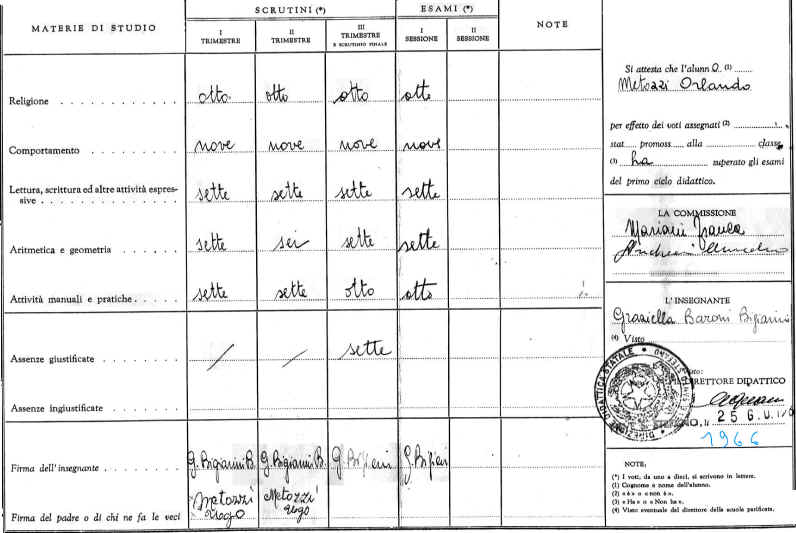 MATERIE DI STUDIO
SCRUTINI (*)
ESAMI (*)
NOTE
I TRIMESTRE
II TRIMESTRE
III TRIMESTRE E SCRUTINIO FINALE
I SESSIONE
II SESSIONE
Religione otto otto otto otto
Comportamento nove nove nove nove
Lettura, scrittura ed altre attività espres-
sive sette sette sette sette
Aritmetica e geometria sette sei sette sette
Attività manuali e pratiche sette sette otto otto
Assenze giustificate / / sette
Assenze ingiustificate
Firma dell'insegnante G. Bigianni B. G. Bigianni B.
Firma del padre o di chi ne fa le veci Metozzi Metozzi
Ugo
Si attesta che l'alunn o (1)
Metozzi Orlando
per effetto dei voti assegnati (2)
stat promoss alla classe,
(3) ha superato gli esami
del primo ciclo didattico.
LA COMMISSIONE
Mariani Franca
L'INSEGNANTE
Graziella Baroni
(4) Visto
DIRETTORE DIDATTICO
25 GIU
1966
NOTE,
(*) I voti, da uno a dieci, si scrivono in lettere.
(1) Cognome e nome dell'alunno.
(2) «è» o «non è».
(3) «Ha» o «Non ha».
(4) Visto eventuale del direttore della scuola parificata.